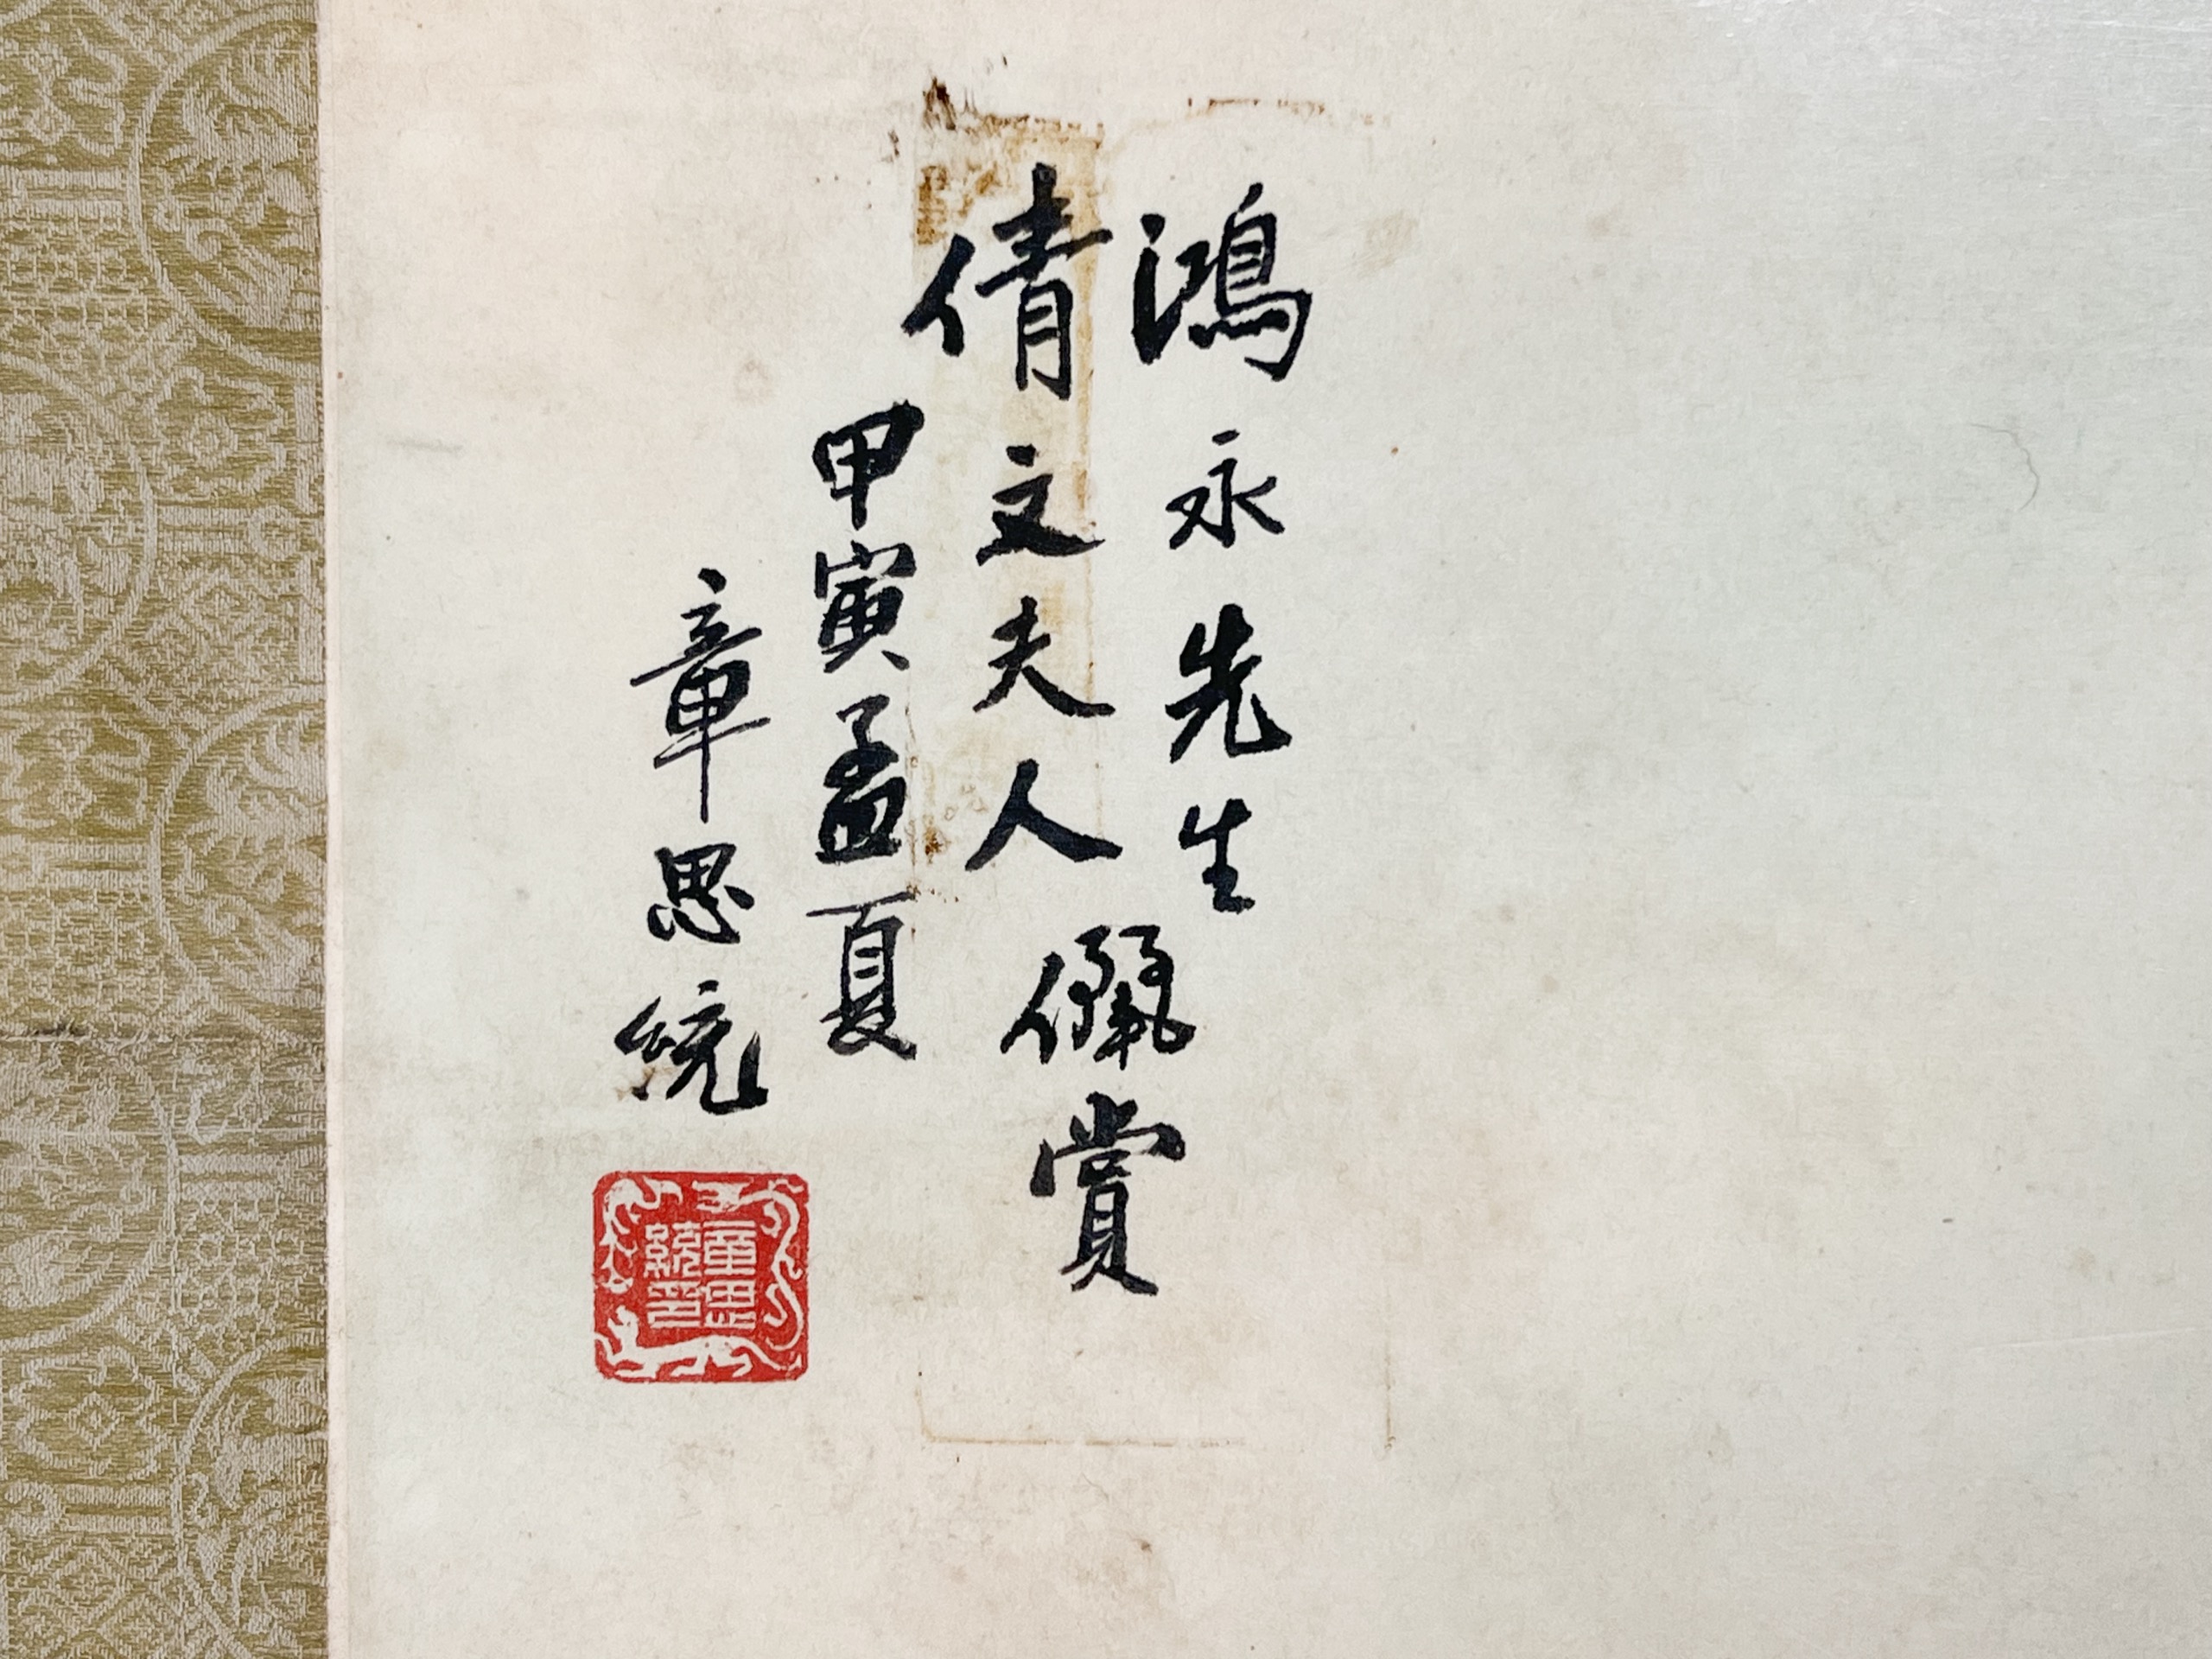 鴻永先生
倩文夫人
儷賞
甲寅孟夏
章思統
章思
統印